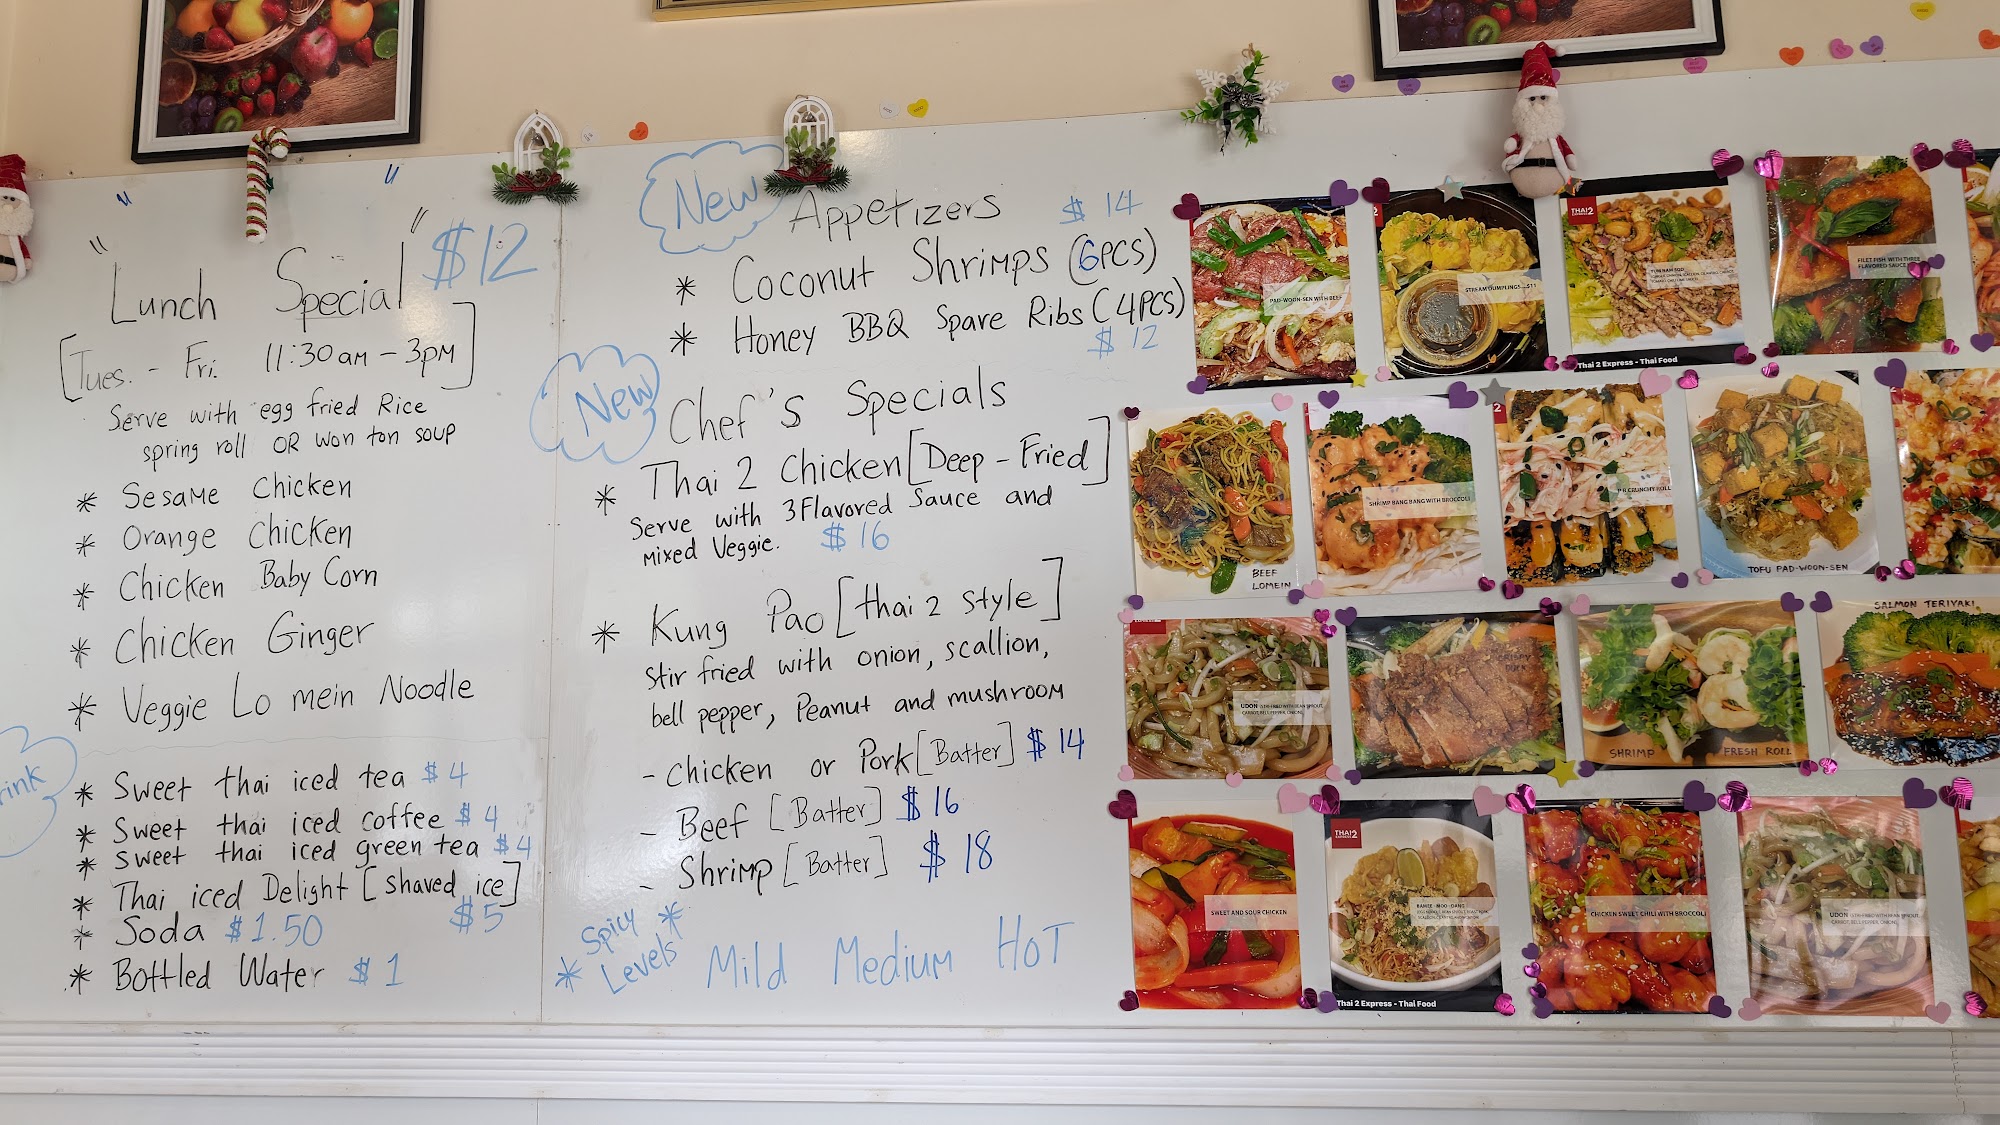 "Lunch Special" $12
[Tues. - Fri. 11:30am - 3pm]
Serve with egg fried Rice
spring roll OR won ton soup
* Sesame Chicken
* Orange Chicken
* Chicken Baby Corn
* Chicken Ginger
* Veggie Lo mein Noodle
rink
* Sweet thai iced tea $4
* Sweet thai iced coffee $4
* Sweet thai iced green tea $4
* Thai iced Delight [shaved ice]
$5
* Soda $1.50
* Bottled Water $1
New
Appetizers
$14
* Coconut Shrimps (6PCS)
* Honey BBQ Spare Ribs (4PCS)
$12
New
Chef's Specials
* Thai 2 Chicken [Deep-Fried]
Serve with 3Flavored Sauce and
mixed Veggie. $16
* Kung Pao [thai 2 style]
Stir fried with onion, scallion,
bell pepper, Peanut and mushroom
- chicken or Pork [Batter] $14
- Beef [Batter] $16
- Shrimp [Batter] $18
* Spicy Levels *
Mild Medium HOT
PAD-WOON-SEN WITH BEEF
STREAM DUMPLINGS....$11
THAI2
Thai 2 Express - Thai Food
FILET FISH WITH THREE
FLAVORED SAUCE
BEEF
LOMEIN
SHRIMP BANG BANG WITH BROCCOLI
CRUNCHY ROLL
TOFU PAD-WOON-SEN
UDON (STIR-FRIED WITH BEAN SPROUT,
CARROT, BELL PEPPER, ONION)
CRISPY
DUCK
SHRIMP
FRESH ROLL
SALMON TERIYAKI
SWEET AND SOUR CHICKEN
THAI2
BAMEE - MOO - DANG
Thai 2 Express - Thai Food
CHICKEN SWEET CHILI WITH BROCCOLI
UDON (STIR-FRIED WITH BEAN SPROUT,
CARROT, BELL PEPPER, ONION)